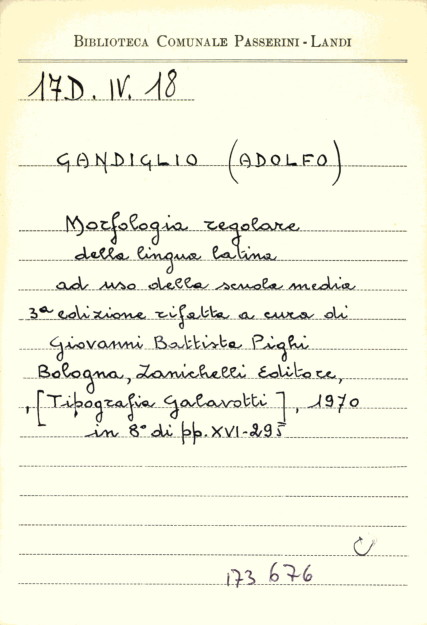 BIBLIOTECA COMUNALE PASSERINI-LANDI
17D. IV. 18
GANDIGLIO (ADOLFO)
Morfologia regolare
della lingua latina
ad uso della scuola media
3ª edizione rifatta a cura di
Giovanni Battista Pighi
Bologna, Zanichelli Editore,
, [Tipografia Galavotti], 1970
in 8° di pp. XVI-295
173 676